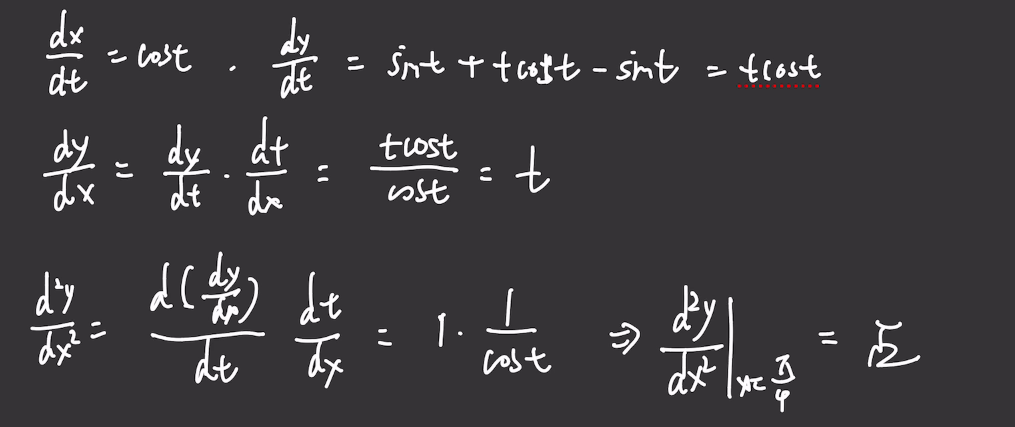 dx/dt = cost . dy/dt = sint + tcost - sint = tcost
dy/dx = dy/dt · dt/dx = tcost/cost = t
d²y/dx² = d(dy/dx)/dt dt/dx = 1 · 1/cost ⇒ d²y/dx² | x=π/4 = √2